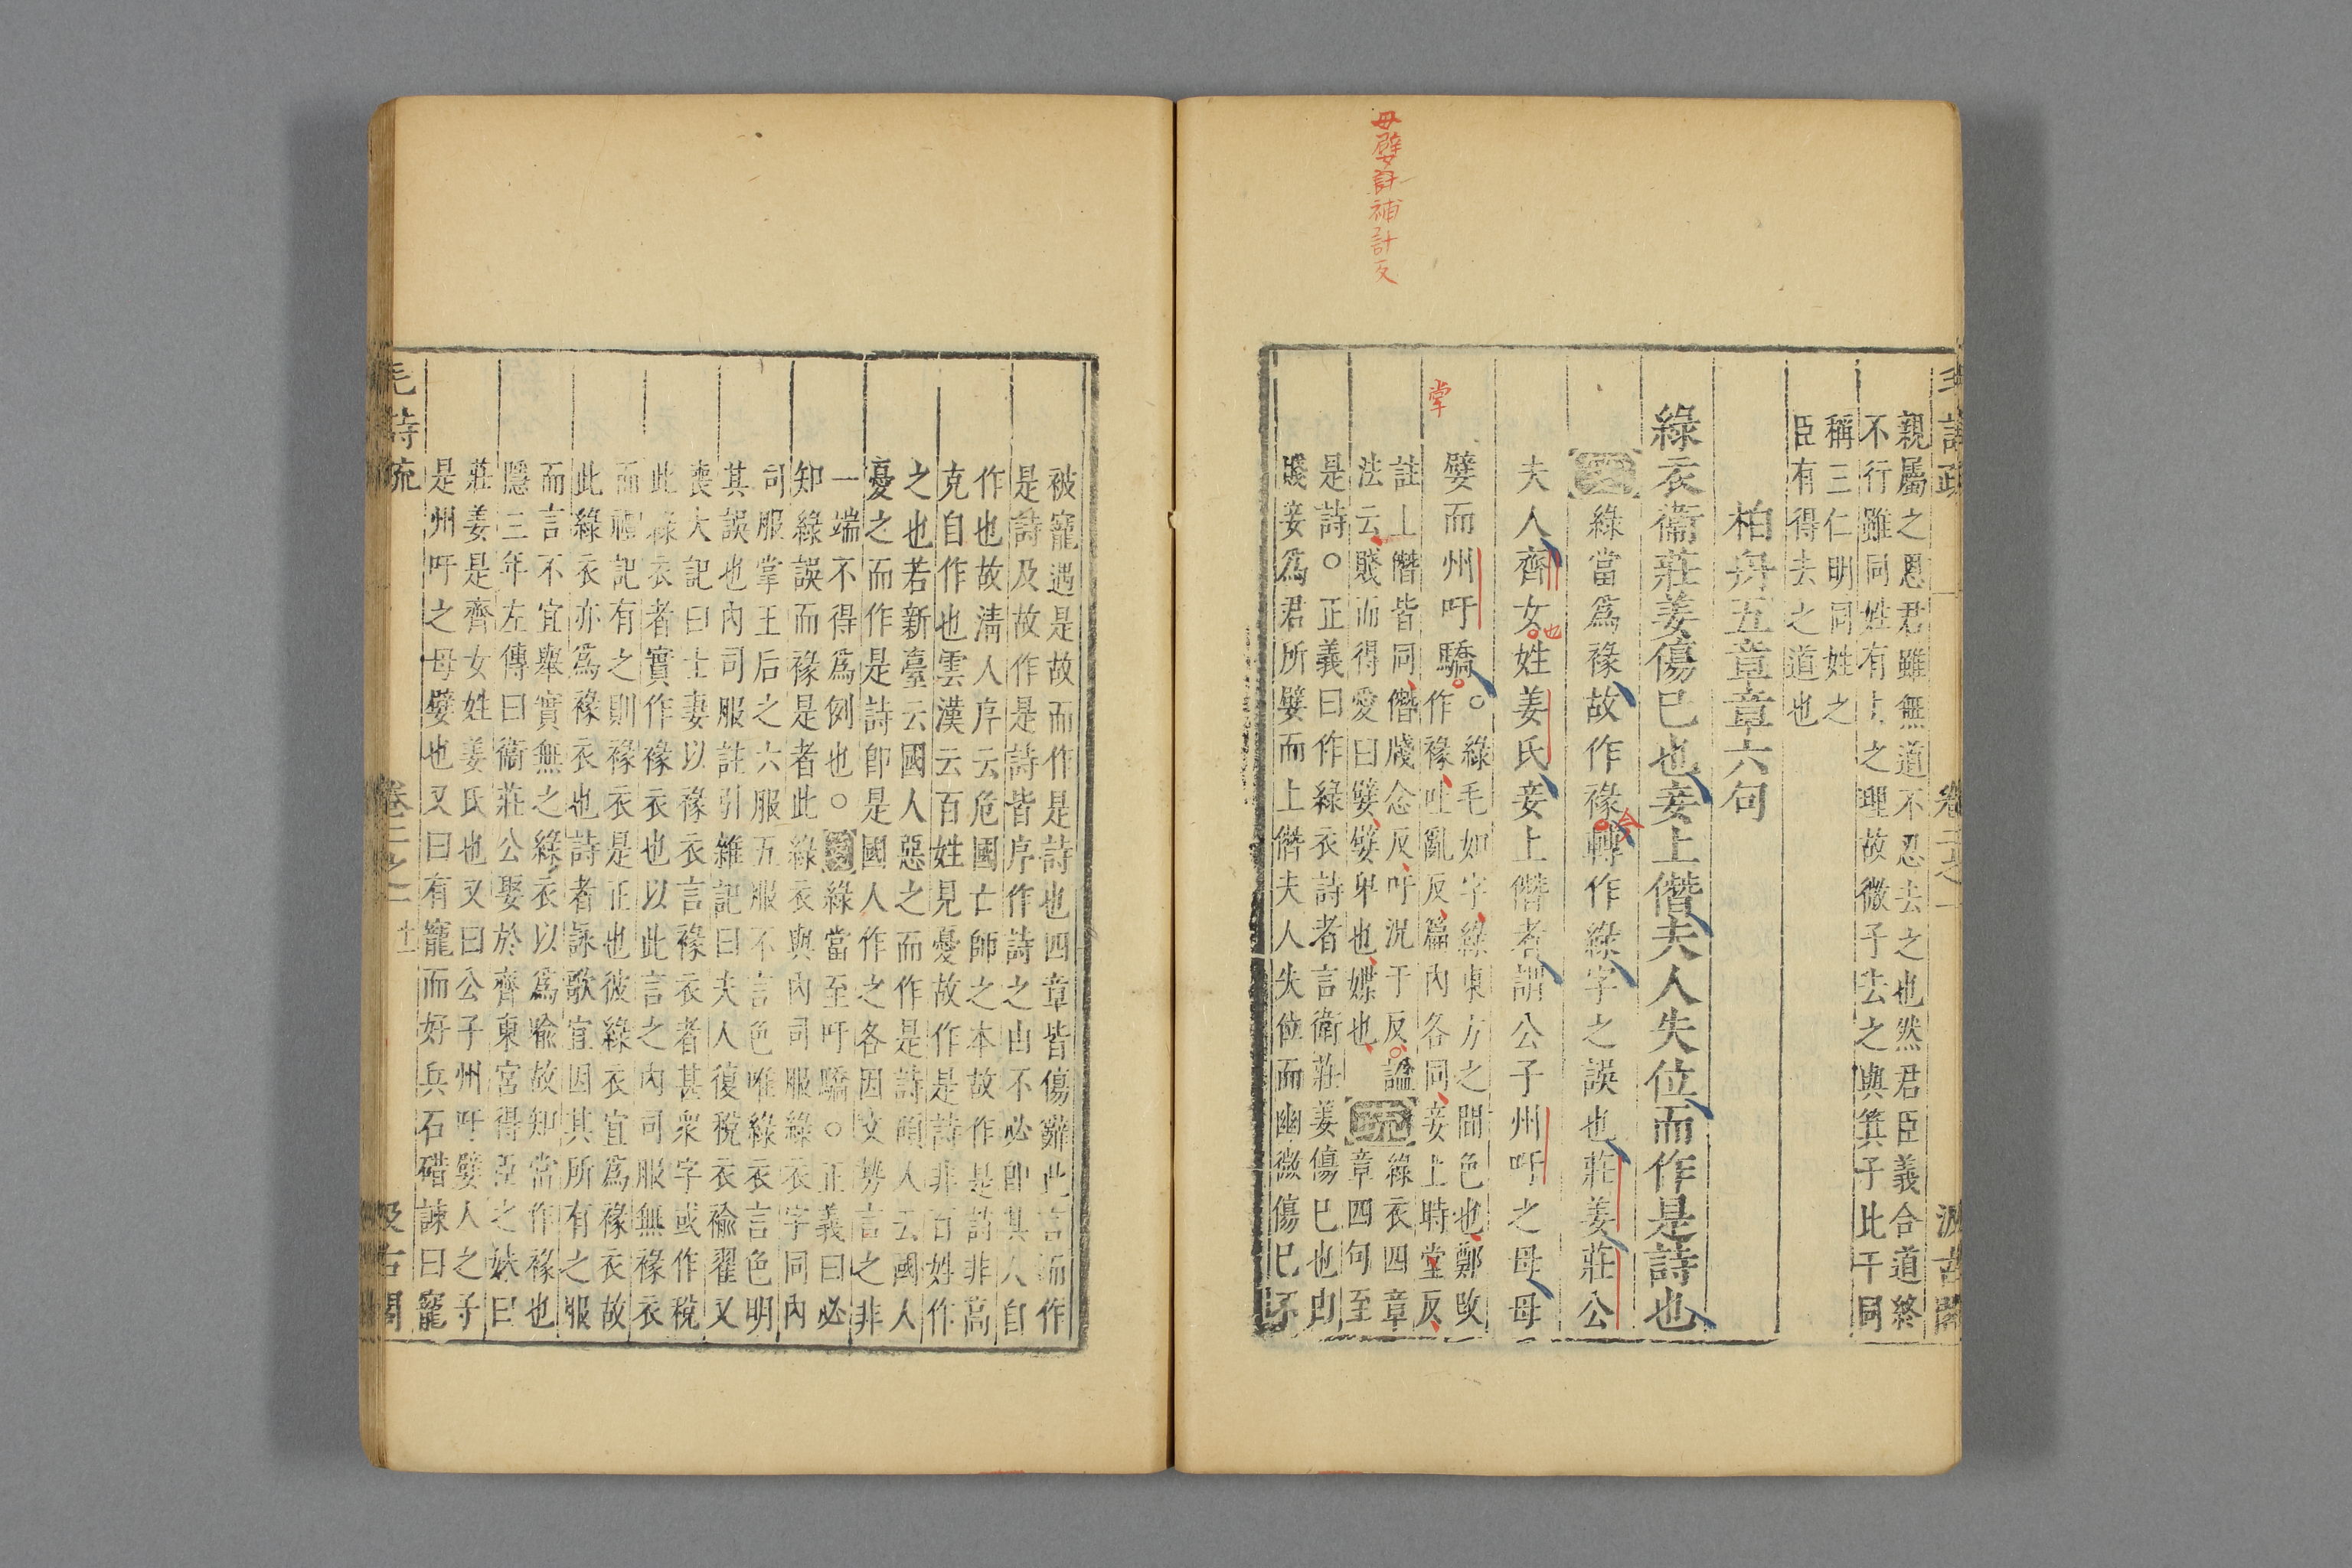 母嬖註補計反
親屬之恩君雖無道不忍去之也然君臣義合道終
不行雖同姓有去之理故微子去之與箕子比干同
稱三仁明同姓之
臣有得去之道也
柏舟五章章六句
綠衣衞莊姜傷已也妾上僭夫人失位而作是詩也
綠當爲褖故作褖轉作綠字之誤也莊姜莊公
今
夫人齊女姓姜氏妾上僭者謂公子州吁之母母
也
嬖而州吁驕
掌
○綠毛如字綠東方之間色也鄭改
作褖吐亂反篇內各同妾上時堂反
註上僭皆同僭牋念反吁況于反○諡
法云賤而得愛曰嬖嬖卑也媟也
疏綠衣四章
章四句至
是詩○正義曰作綠衣詩者言衛莊姜傷巳也由
賤妾爲君所嬖而上僭夫人失位而幽微傷巳不
被寵遇是故而作是詩也四章皆傷辭此言而作
是詩及故作是詩皆序作詩之由不必卽其人自
作也故淸人序云危國亡師之本故作是詩非高
克自作也雲漢云百姓見憂故作是詩非百姓作
之也若新臺云國人惡之而作是詩碩人云國人
憂之而作是詩卽是國人作之各因文勢言之非
一端不得爲例也○綠當至吁驕○正義曰必
知綠誤而褖是者此綠衣與內司服綠衣字同內
司服掌王后之六服五服不言色唯綠衣言色明
其誤也內司服註引雜記曰夫人復稅衣褕翟又
喪大記曰士妻以褖衣言褖衣者甚衆字或作稅
此綠衣者實作褖衣也以此言之內司服無褖衣
而禮記有之則褖衣是正也彼綠衣宜爲褖衣故
此綠衣亦爲褖衣也詩者詠歌宜因其所有之服
而言不宜舉實無之綠衣以爲喻故知當作褖也
隱三年左傳曰衞莊公娶於齊東宮得臣之妹曰
莊姜是齊女姓姜氏也又曰公子州吁嬖人之子
是州吁之母嬖也又曰有寵而好兵石碏諫曰寵
毛詩疏 卷二之一 十一 汲古閣